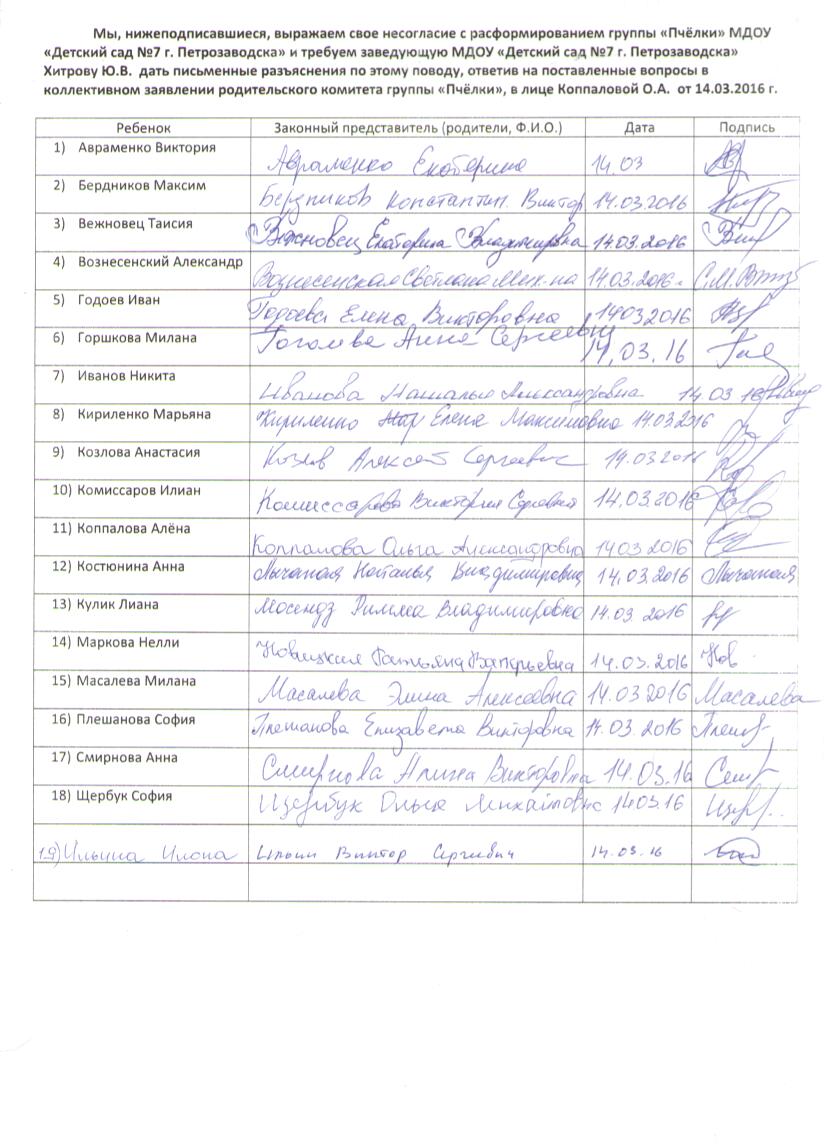 Мы, нижеподписавшиеся, выражаем свое несогласие с расформированием группы «Пчёлки» МДОУ
«Детский сад №7 г. Петрозаводска» и требуем заведующую МДОУ «Детский сад №7 г. Петрозаводска»
Хитрову Ю.В. дать письменные разъяснения по этому поводу, ответив на поставленные вопросы в
коллективном заявлении родительского комитета группы «Пчёлки», в лице Коппаловой О.А. от 14.03.2016 г.
Ребенок Законный представитель (родители, Ф.И.О.) Дата Подпись
1) Авраменко Виктория Авраменко Екатерина 14.03
2) Бердников Максим Бердников Константин Виктор 14.03.2016
3) Вежновец Таисия Вежновец Екатерина Владимировна 14.03.2016
4) Вознесенский Александр Вознесенская Светлана Мих-на 14.03.2016г.
5) Годоев Иван Годоева Елена Викторовна 14032016
6) Горшкова Милана Гоголева Анна Сергеевна 14.03.16
7) Иванов Никита Иванова Наталья Александровна 14.03.16
8) Кириленко Марьяна Кириленко Елена Максимовна 14.03.2016
9) Козлова Анастасия Козлов Алексей Сергеевич 14.03.2016
10) Комиссаров Илиан Комиссарова Виктория 14.03.2016
11) Коппалова Алёна Коппалова Ольга Александровна 14032016
12) Костюнина Анна Наталья Владимировна 14.03.2016
13) Кулик Лиана Мосендз Римма Владимировна 14.03.2016
14) Маркова Нелли Новицкая Татьяна Валерьевна 14.03.2016 Нов
15) Масалева Милана Масалева Элина Алексеевна 14.03.2016 Масалева
16) Плешанова София Плешанова Елизавета Викторовна 14.03.2016
17) Смирнова Анна Смирнова Арина Викторовна 14.03.16
18) Щербук София Щербук Ольга Михайловна 1403.16
19) Ильина Илона Ильин Виктор Сергеевич 14.03.16